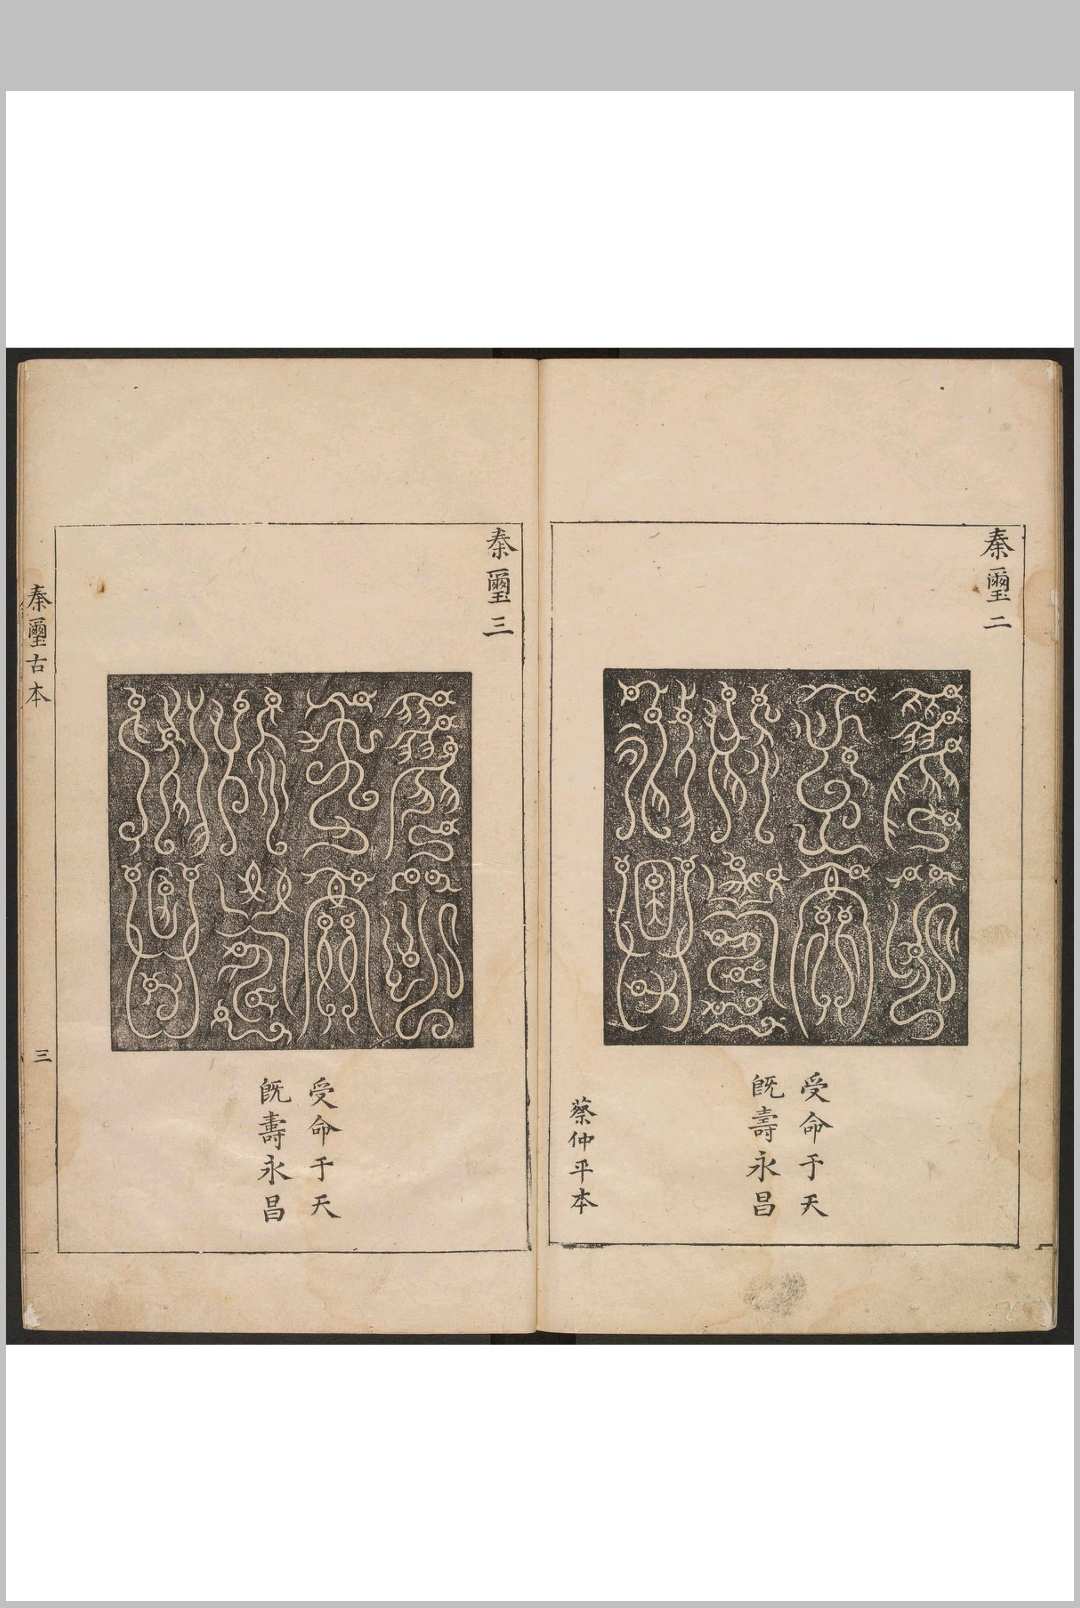 秦璽二
受命于天
旣壽永昌
蔡仲平本
秦璽三
受命于天
旣壽永昌
秦璽古本
三